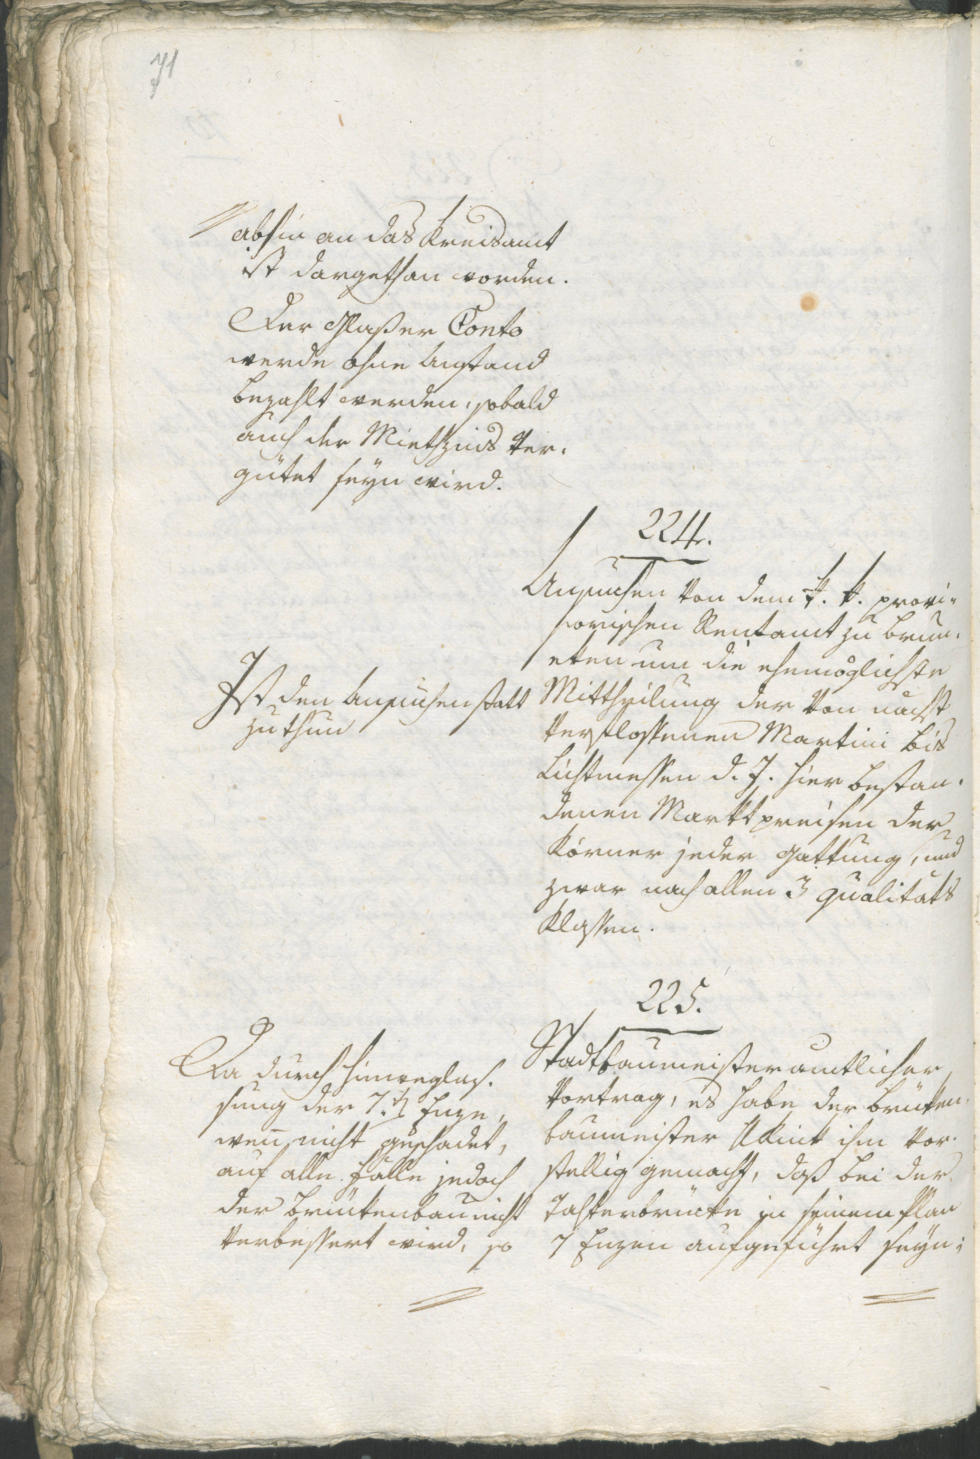 71
abhin an das Kreisamt
ist dargethan worden.
Der Glaßer Conto
werde ohne Anstand
bezahlt werden, sobald
auch der Miethzins ver-
gütet seyn wird.
224.
Ansuchen von dem k. k. provi-
sorischen Rentamt zu Brun-
eken um die ehemöglichste
Mittheilung der von nächst
verflossenen Martini bis
Lichtmessen d. J. hier bestan-
denen Marktpreisen der
Körner jeder Gattung, und
zwar nach allen 3 Qualitäts
Klassen.
Ist den Ansuchen statt
zu thun
225.
Stadtbaumeisteramtlicher
Vortrag, es habe der Brüken-
baumeister ihm vor-
stellig gemacht, daß bei der
in seinem Plan
7 Enzen aufgeführt seyn;
Da durch Hinweglas-
sung der 7.t Enze,
wenn nicht geschadet,
auf alle Fälle jedoch
der Brükenbau nicht
verbessert wird, so